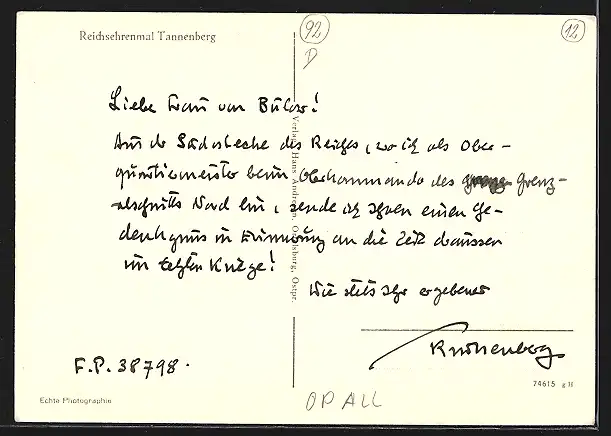 Reichsehrenmal Tannenberg
92
D
12
Liebe Frau von Bülow!
Aus der des Reiches, wo ich als Ober-
quartiermeister beim Oberkommando des Grenz-
abschnitts Nord bin, sende ich Ihnen einen Ge-
denkgruss in Erinnerung an die Zeit draussen
im letzten Kriege!
Wie stets Ihr ergebener
F.P. 38798.
Verlag Hans Andres, Ortelsburg, Ostpr.
Echte Photographie
74615
OP ALL